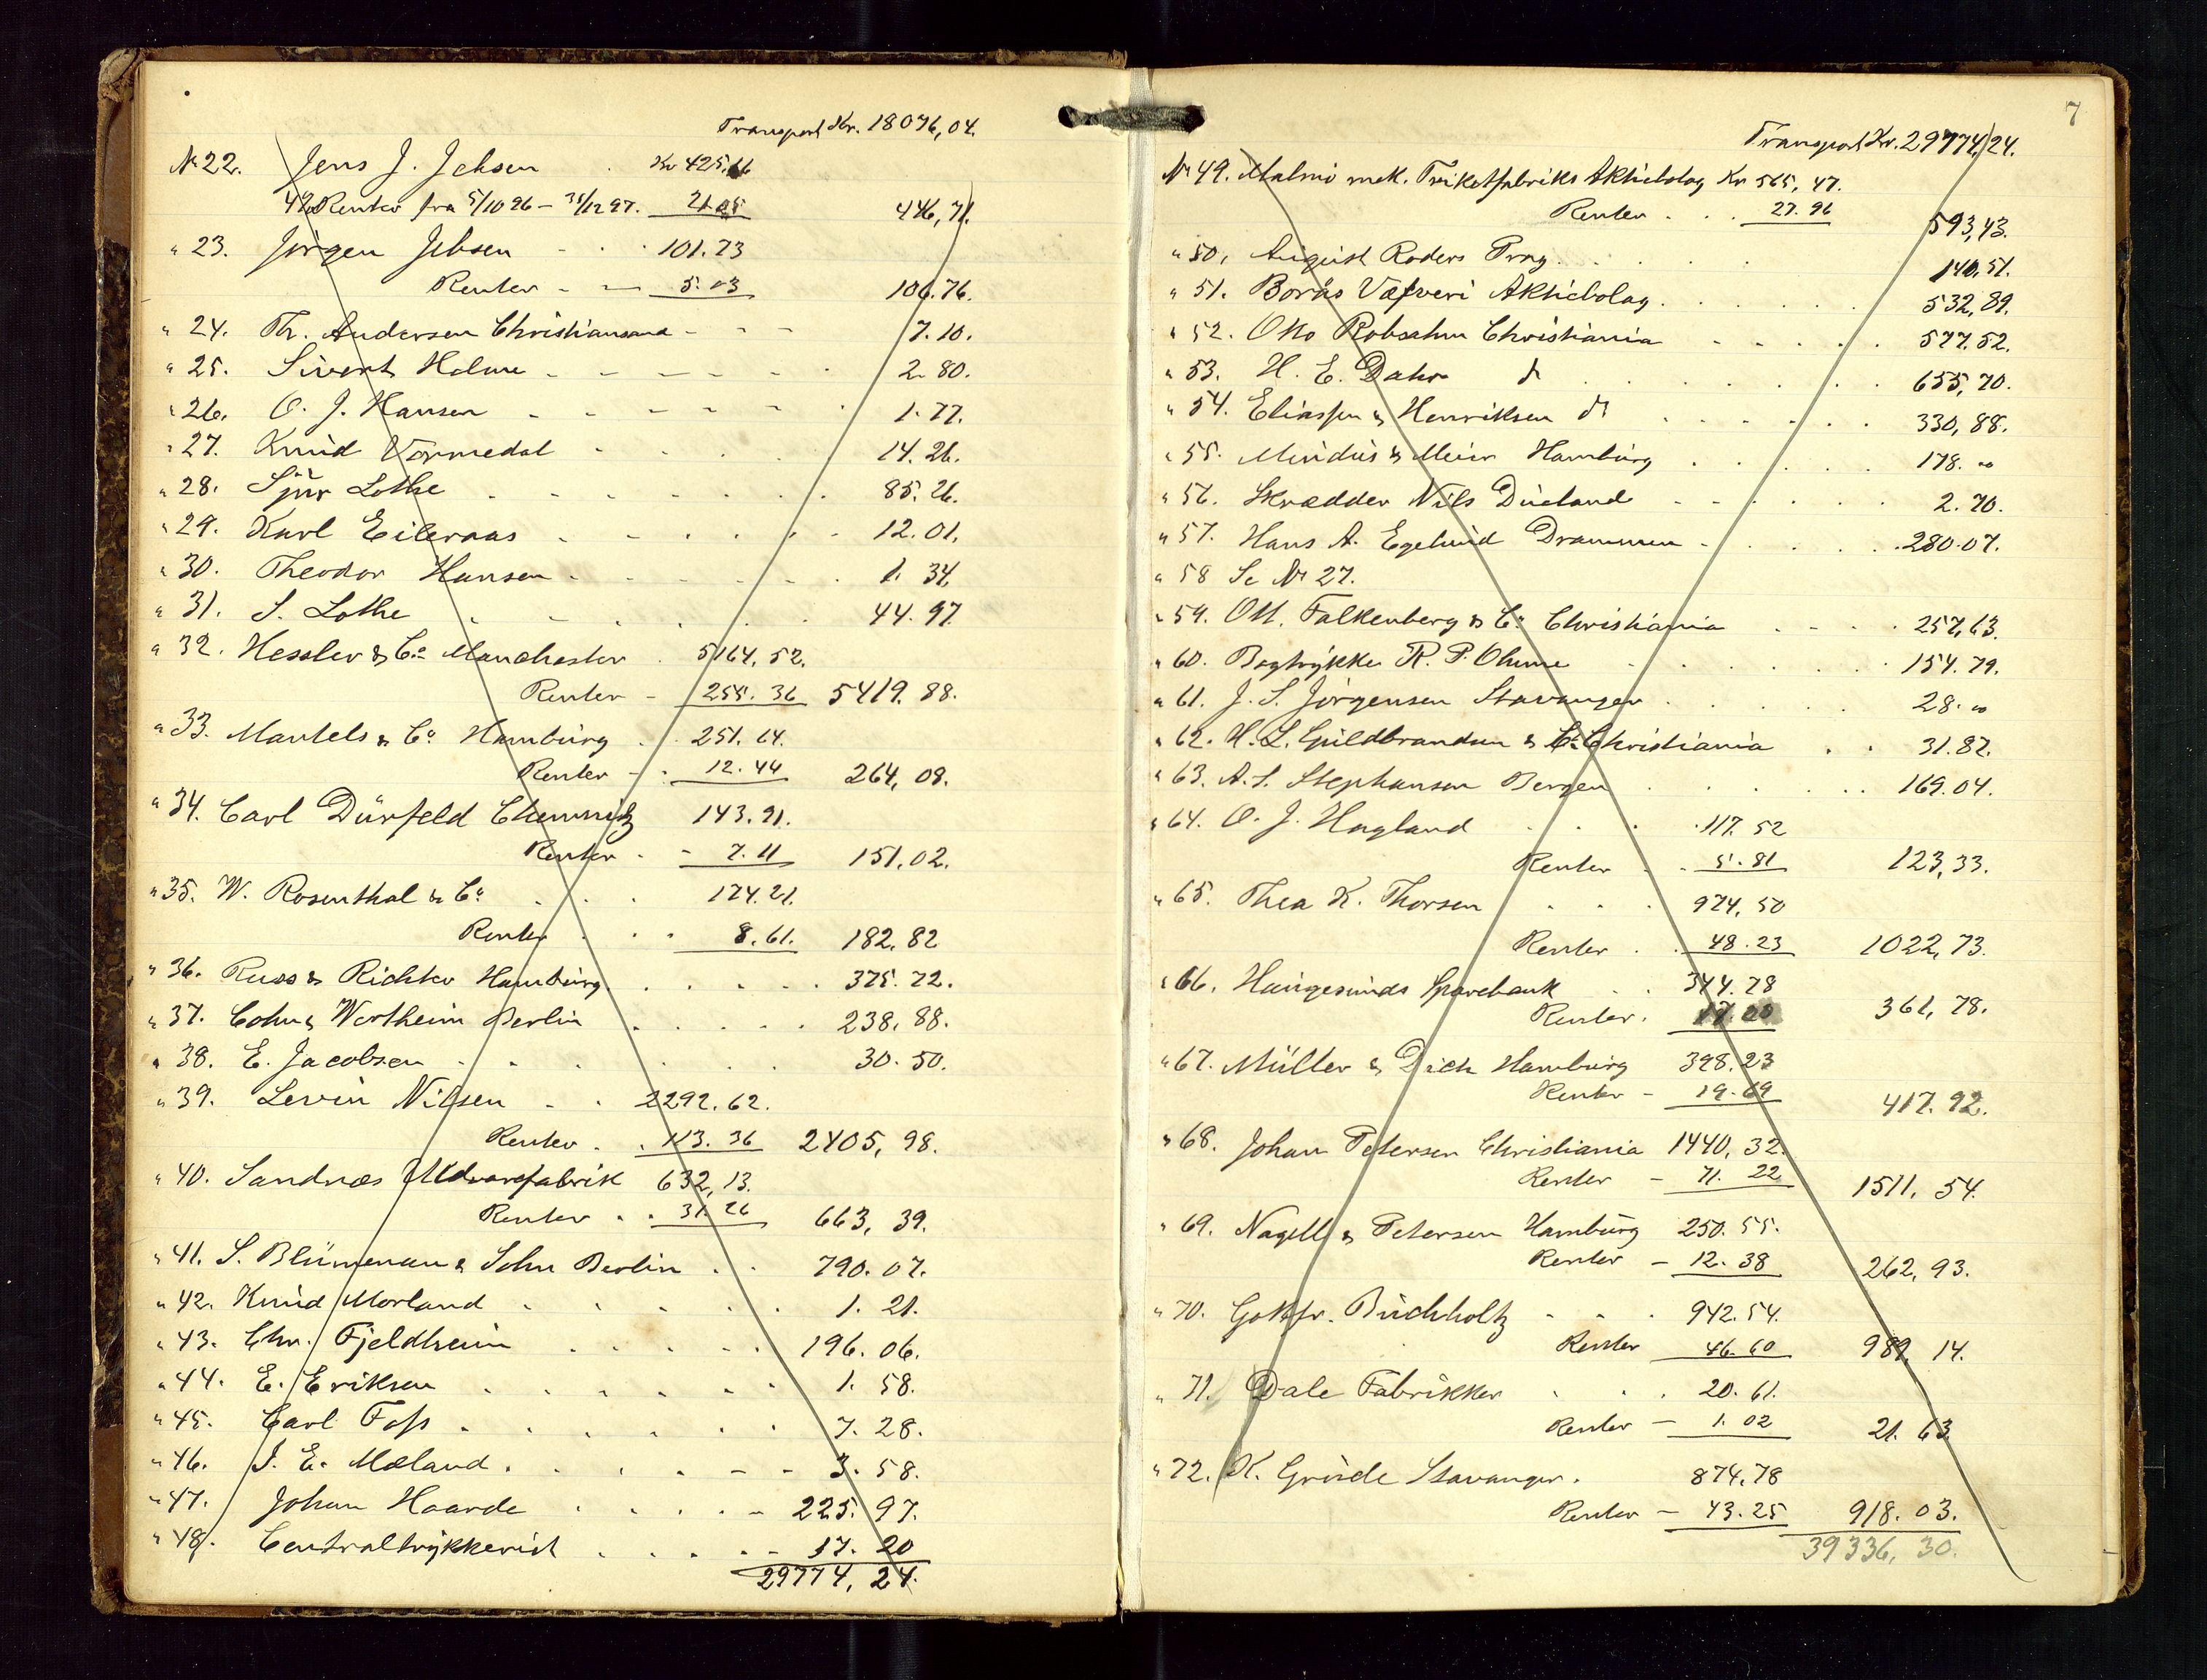 Transport Kr. 18076,04.
No 22. Jens J. Jebsen . Kr 425.66
4% Renter fra 5/10 96 – 31/12 97. 21.05 446,71.
" 23. Jørgen Jebsen - . . 101.73
Renter - - 5.03 106.76.
" 24. Th. Andersen Christianssand - - - 7.10.
" 25. Sivert Holme - - - - - . 2.80.
" 26. O. J. Hansen - - - - - . 1.77.
" 27. Knud Vormedal . . . . . 14.26.
" 28. Sjur Lothe . . . . . . . 85.26.
" 29. Karl Eileraas . . . . . . - 12.01.
" 30. Theodor Hansen . . . . . . 1.34.
" 31. S. Lothe . . . . . . . 44.97.
" 32. Hessler & Co Manchester . 5164,52.
Renter - 255.36 5419.88.
" 33. Mantels & Co Hamburg . . 251.64.
Renter - . 12.44 264,08.
" 34. Carl Dürfeld Chemnitz 143.91.
Renter . - 7.11 151,02.
" 35. W. Rosenthal & Co . . . 174.21.
Renter . . . 8.61. 182,82
" 36. Russ & Richter Hamburg. . . . . . 375.72.
" 37. Cohn & Wertheim Berlin . . . . . 238,88.
" 38. E. Jacobsen . . . . . . 30.50.
" 39. Levin Nilsen - . 2292.62.
Renter . . 113.36 2405,98.
" 40. Sandnæs Uldvarefabrik 632,13.
Renter . . 31.26 663,39.
" 41. S. Blumenau & Sohn Berlin . . 790.07.
" 42. Knud Morland . . . . . . 1.21.
" 43. Chr. Fjeldheim . . . . . 196.06.
" 44. E. Eriksen . . . . . . 1.58.
" 45. Carl Foss . . . . . . 7.28.
" 46. I. E. Mæland . . . . - - 3.58.
" 47. Johan Haarde . . . . - 225.97.
" 48. Centraltrykkeriet . . . . - 17.20
29774,24.
7
Transport Kr. 29774,24.
No 49. Malmö mek. Trikotfabriks Aktiebolag Kr 565,47.
Renter . . . 27.96 593,43.
" 50, August Roders Prag . . . . . 140.51.
" 51. Borås Väfveri Aktiebolag . . . . . . 532,89.
" 52. Otto Robsahm Christiania - - - - . 577.52.
" 53. H. E. Dahr do . . . . . . . . 655,70.
" 54. Eliassen & Henriksen do . . . . . . 330,88.
" 55. Mindus & Meier Hamburg . . . . . 178.00
" 56. Skrædder Nils Dueland - - . . . . 2.70.
" 57. Hans A. Egelund Drammen - . . . . . 280.07.
" 58 Se No 27.
" 59. Ott. Falkenberg & Co Christiania . - . . 257,63.
" 60. Bogtrykker R. P. Ohme - . . . . . . 154.79.
" 61. J. S. Jörgensen Stavanger . . . . . 28.00
" 62. H. L. Guldbrandsen & Co Christiania . . 31.87.
" 63. A. S. Stephansen Bergen . . . . . . . 169.04.
" 64. O. J. Hagland . . . . 117.52
Renter . . 5.81 123,33.
" 65. Thea K. Thorsen . . . 974,50
Renter . . 48.23 1022,73.
" 66. Haugesunds Sparebank . . 344.78
Renter. 17.00 361,78.
" 67. Müller & Dich Hamburg 398.23
Renter - 19.69 417.92.
" 68. Johan Petersen Christiania 1440,32.
Renter - 71.22 1511,54.
" 69. Nagel & Petersen Hamburg 250.55.
Renter - 12.38 262,93.
" 70. Gottfr. Buchholtz - - . 942.54.
Renter 46.60 989.14.
" 71. Dale Fabrikker . . . 20.61.
Renter - 1.02 21.63
" 72. K. Grude Stavanger . 874,78
Renter - 43.25 918.03.
39336,30.